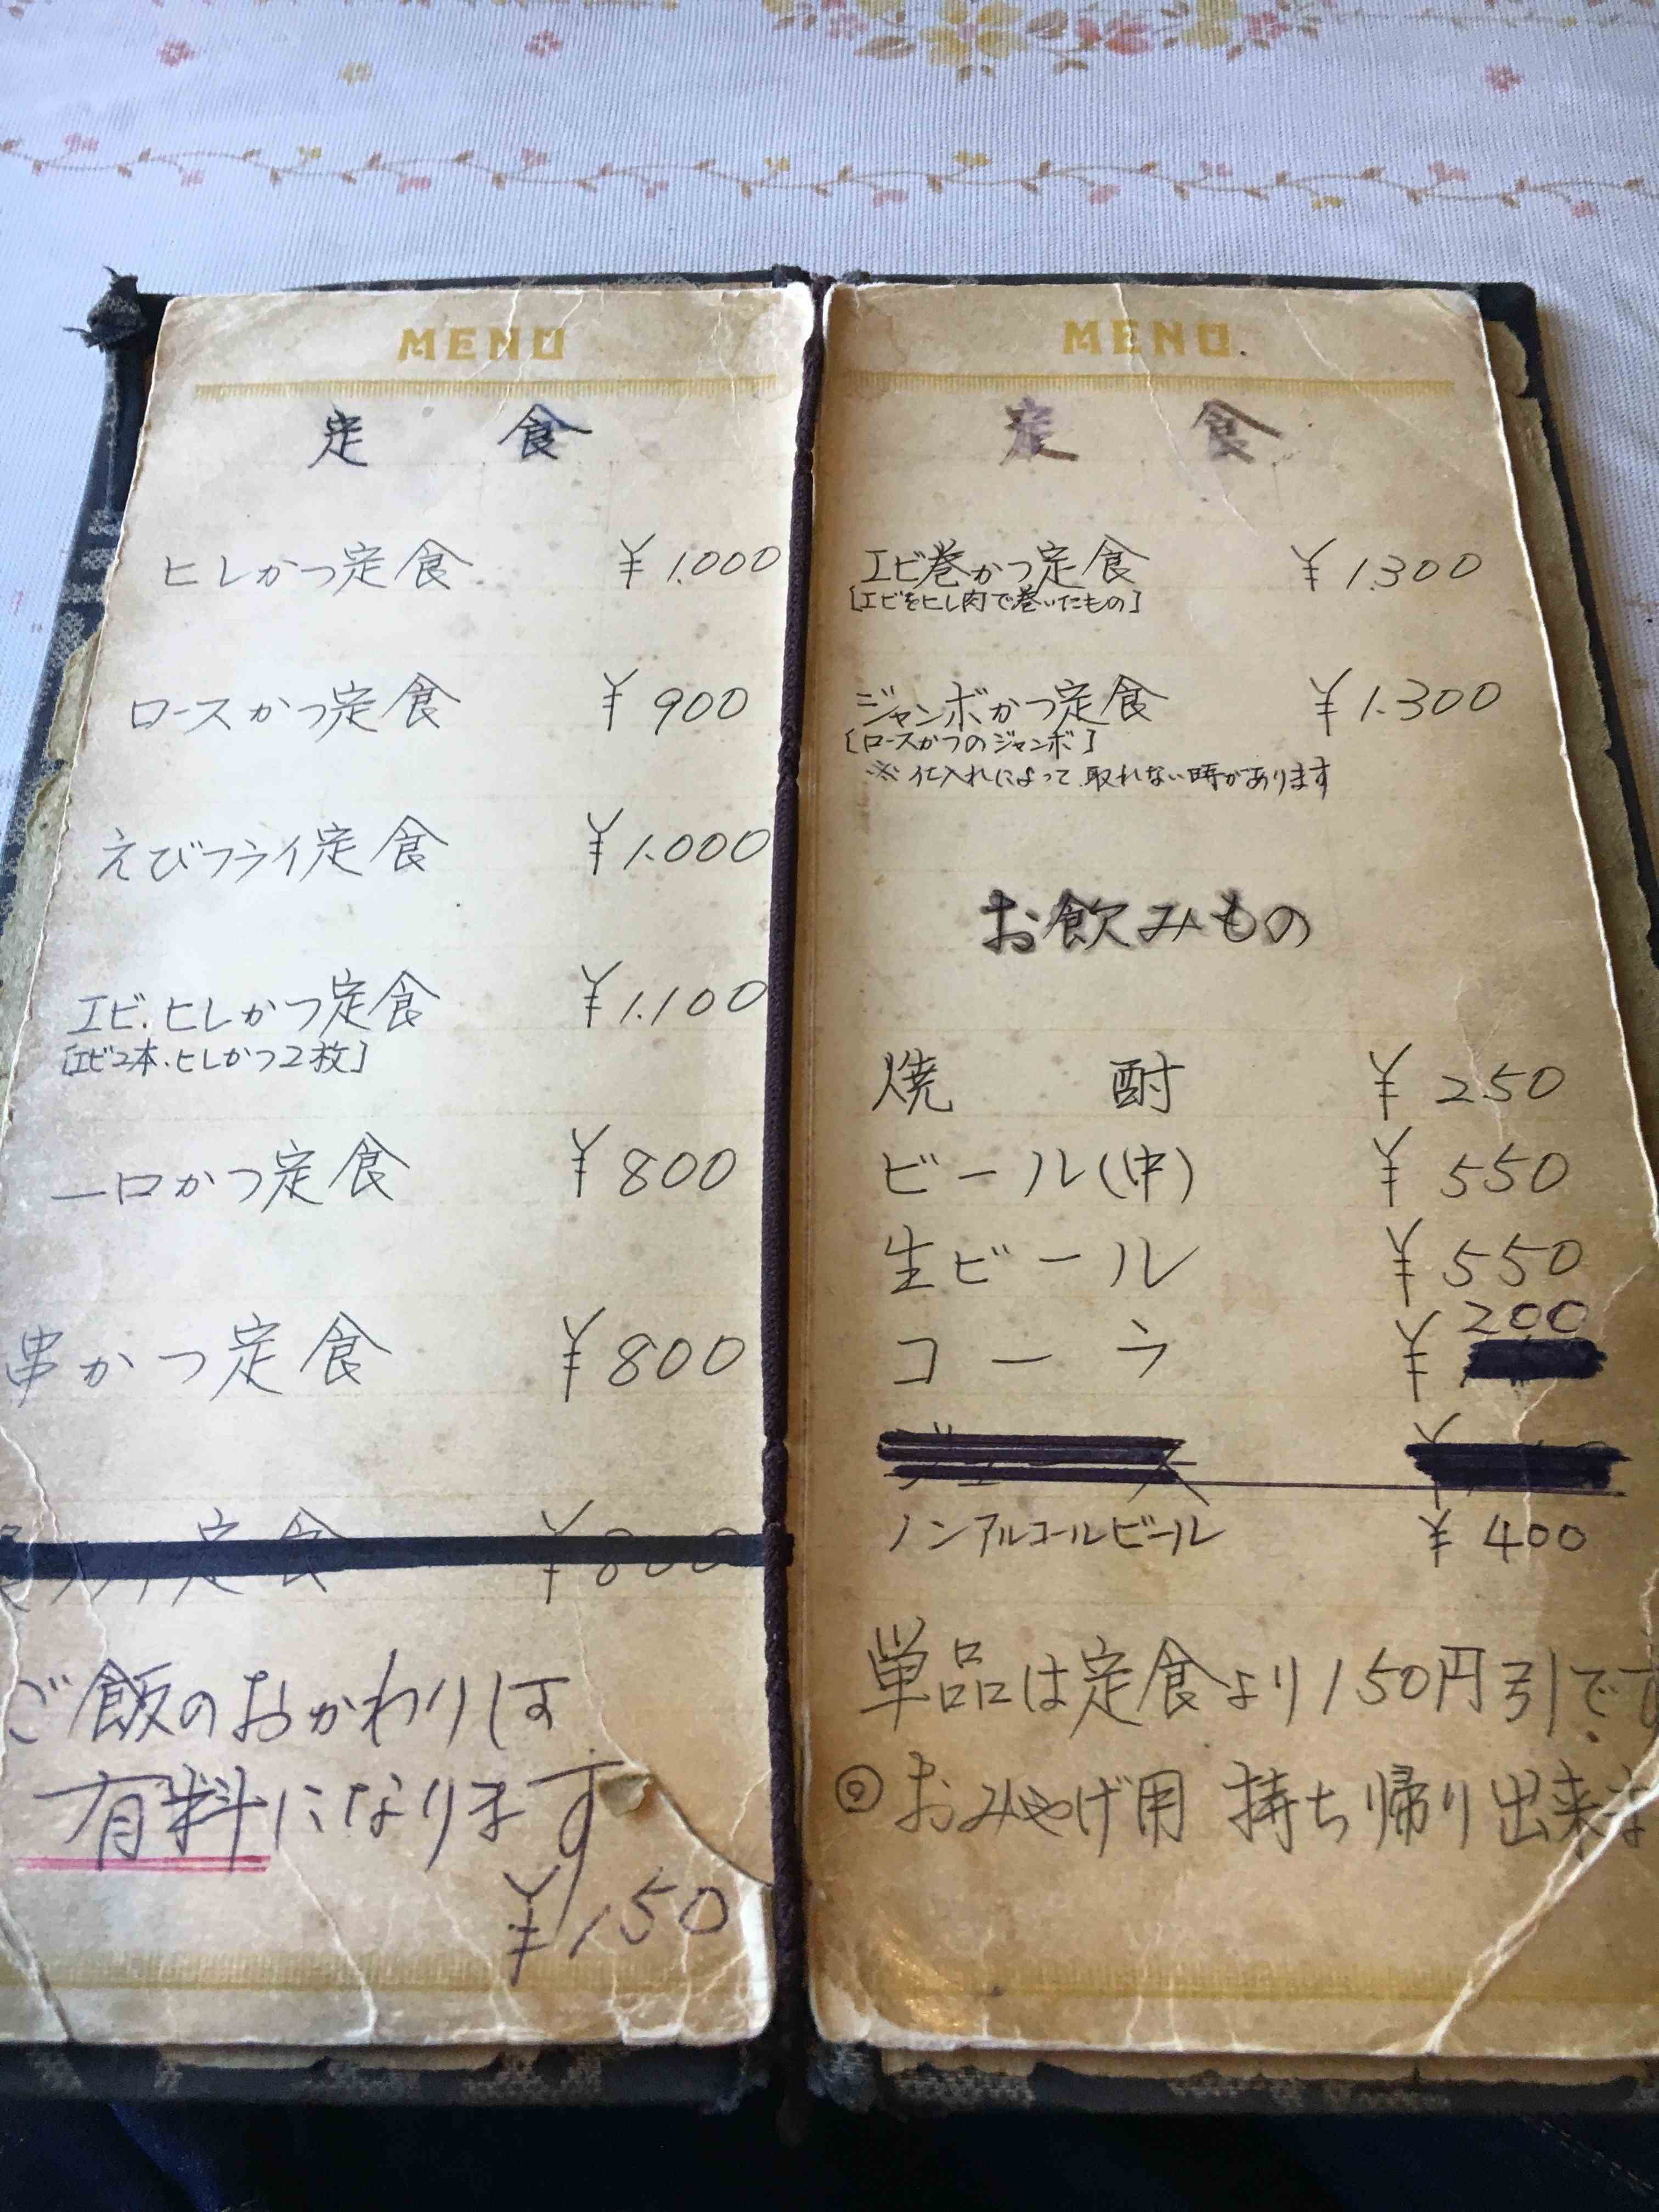 MENU
定 食
ヒレかつ定食 ¥1.000
ロースかつ定食 ¥900
えびフライ定食 ¥1.000
エビ.ヒレかつ定食 ¥1.100
[エビ2本.ヒレかつ2枚]
一口かつ定食 ¥800
串かつ定食 ¥800
フライ定食 ¥800
ご飯のおかわりは
有料になります
¥150
MENU
定 食
エビ巻かつ定食 ¥1.300
[エビをヒレ肉で巻いたもの]
ジャンボかつ定食 ¥1.300
[ロースかつのジャンボ]
※仕入れによって取れない時があります
お飲みもの
焼 酎 ¥250
ビール(中) ¥550
生ビール ¥550
コーラ ¥200
ノンアルコールビール ¥400
単品は定食より150円引です
おみやげ用 持ち帰り出来ま